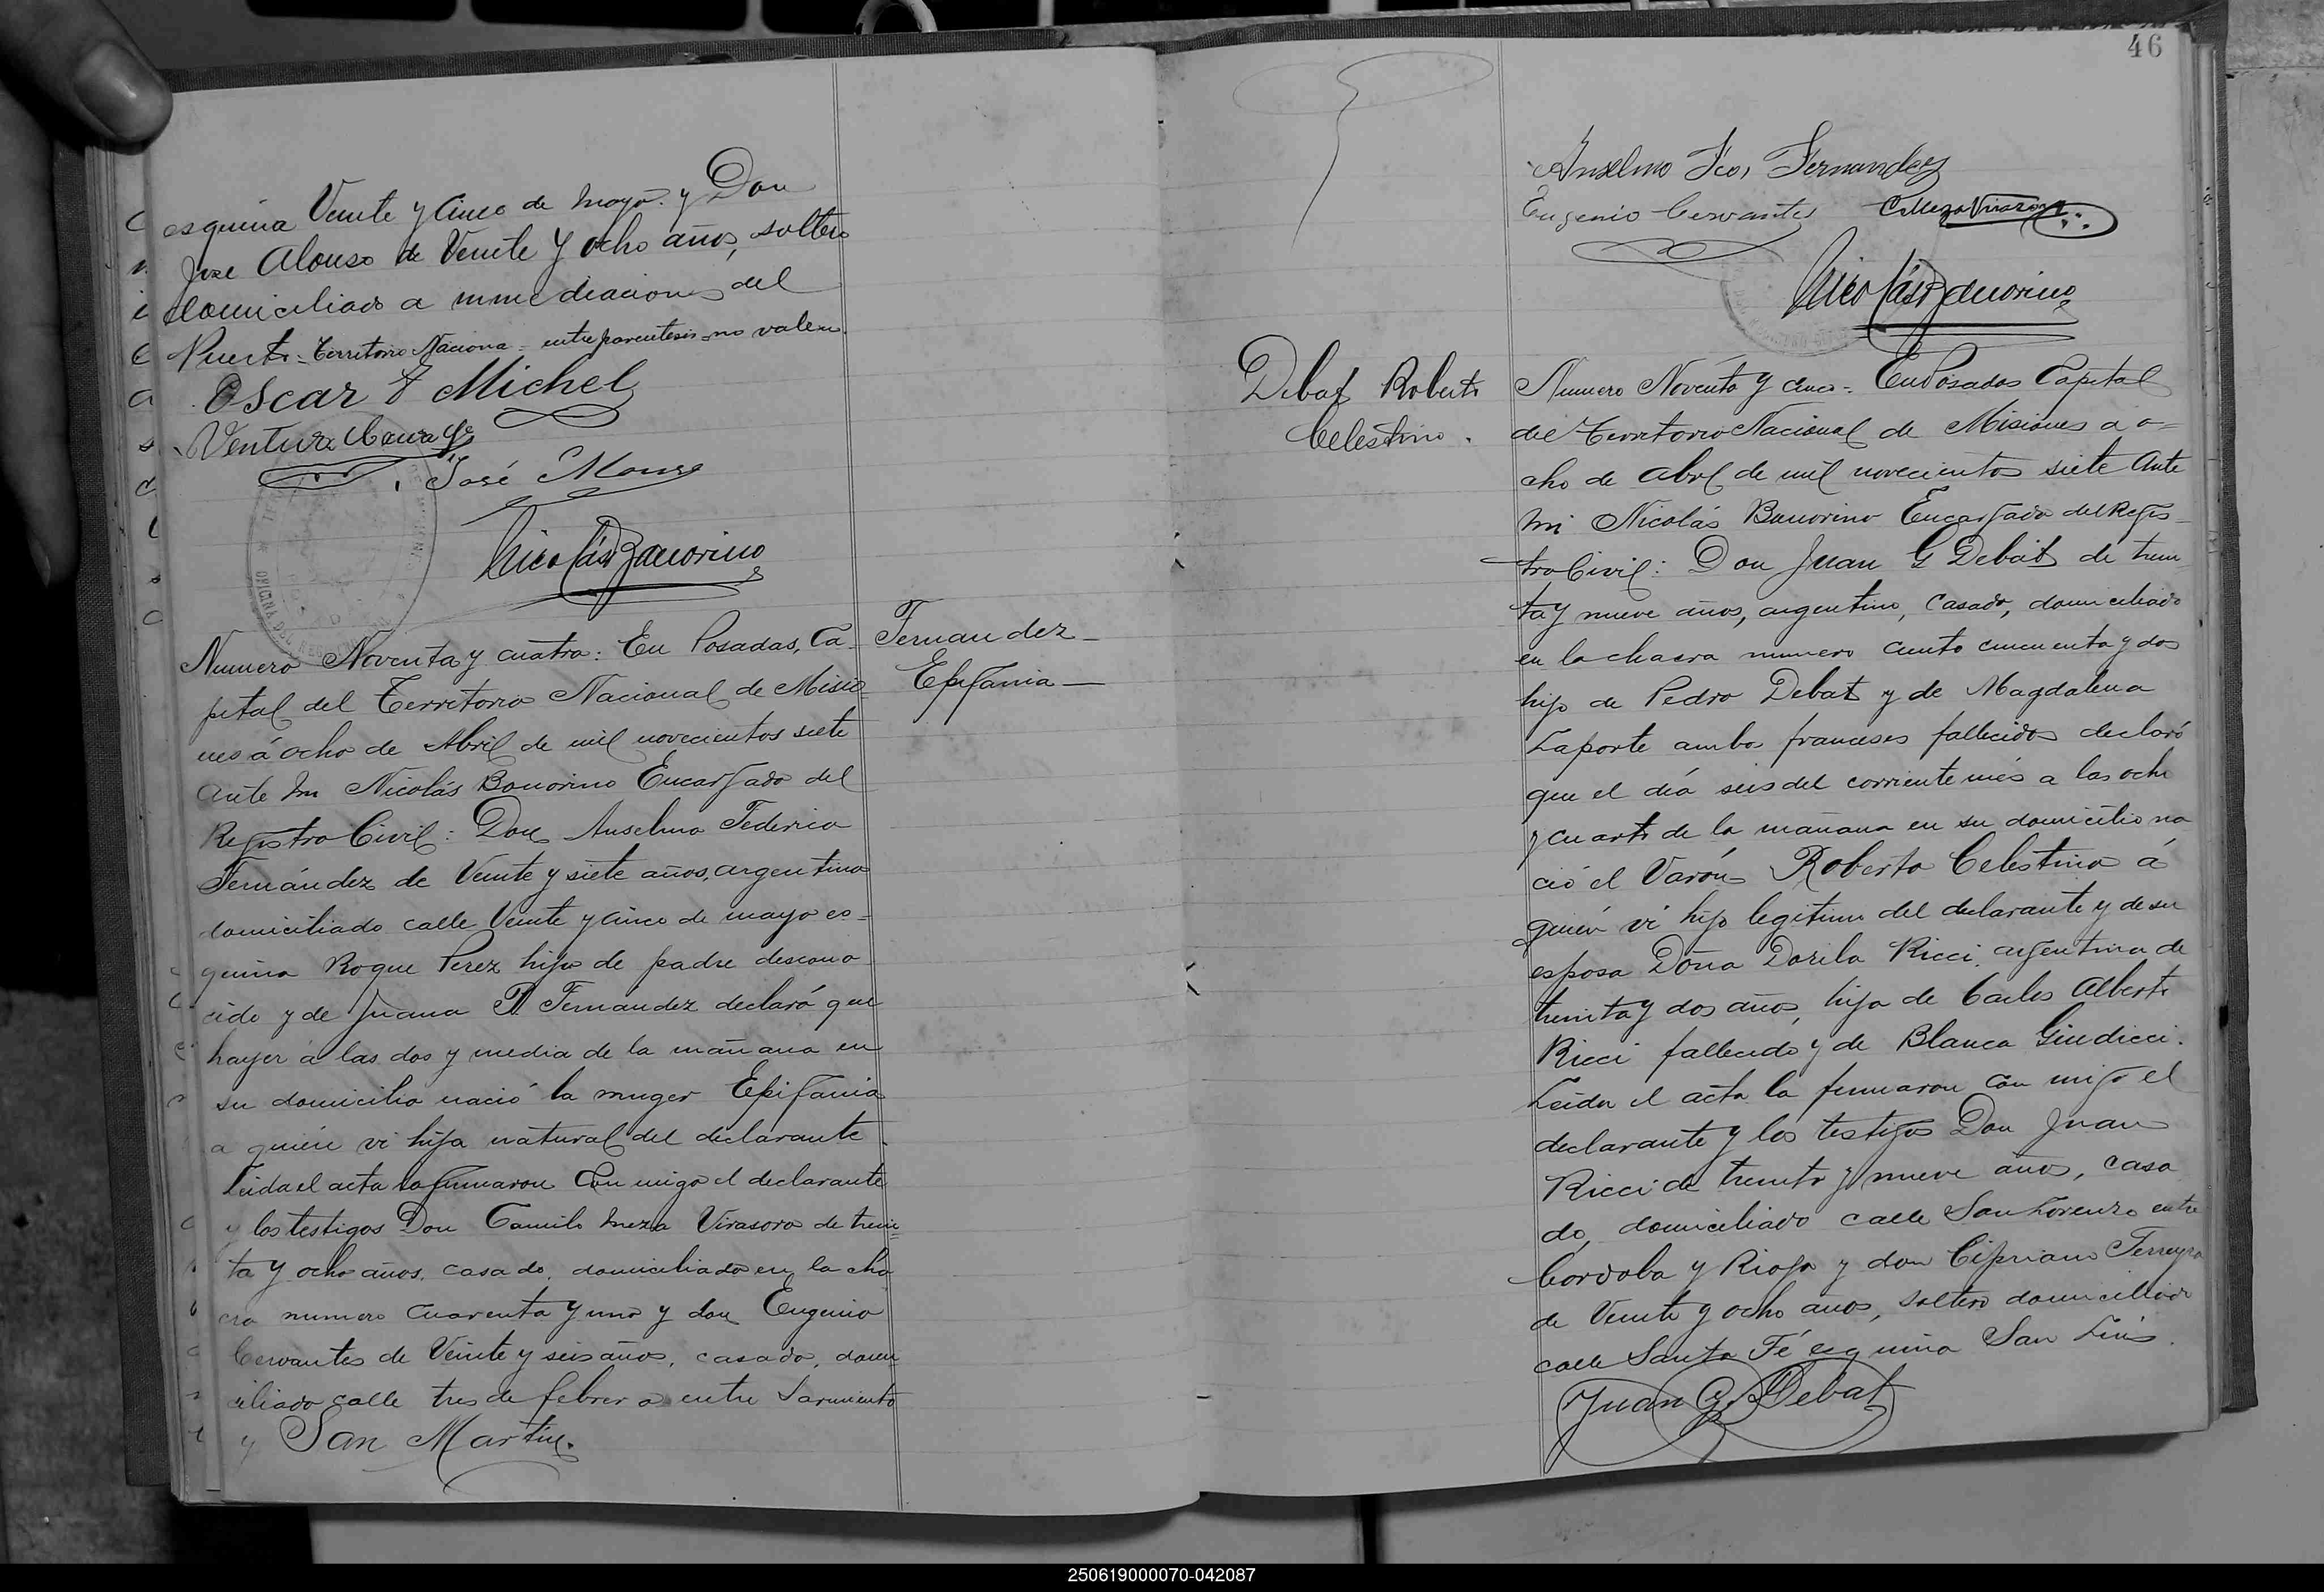 esquina Veinte y Cinco de mayo. y Don
Jose Alonso de Veinte y ocho años, soltero
domiciliado a inmediaciones del
Puerto = Territorio Naciona = entre parentesis no valen.
Oscar F Michel
Ventura
José Alonso
Nicolás Bonorino
Numero Noventa y cuatro: En Posadas, Ca-
pital del Territorio Nacional de Misio-
nes á ocho de Abril de mil novecientos siete
ante mi Nicolás Bonorino Encargado del
Registro Civil: Don Anselmo Federico
Fernández de Veinte y siete años, argentino
domiciliado calle Veinte y cinco de mayo es=
quina Roque Perez hijo de padre descono-
cido y de Juana P. Fernandez declaró que
hayer á las dos y media de la mañana en
su domicilio nació la muger Epifania
a quién vi hija natural del declarante.
Leida el acta la firmaron Con migo el declarante
y los testigos Don Camilo Meza Virasoro de trein=
ta y ocho años, casado, domiciliado en la cha
cra numero Cuarenta y uno y don Eugenio
Cervantes de Veinte y seis años, casado, domi
ciliado calle tres de febrero entre Sarmiento
y San Martin.
Fernandez
Epifania
46
Anselmo Fco, Fernandez
Eugenio Cervantes C Meza Virasoro
Nicolás Bonorino
Debat Roberto
Celestino.
Numero Noventa y cinco = En Posadas Capital
del Territorio Nacional de Misiones a o=
cho de abril de mil novecientos siete Ante
mi Nicolás Bonorino Encargado del Regis-
tro Civil: Don Juan G Debat de trein
ta y nueve años, argentino, Casado, domiciliado
en la chacra numero Ciento cincuenta y dos
hijo de Pedro Debat y de Magdalena
Laporte ambos franceses fallecidos declaró
que el día seis del corriente mes a las ocho
y cuarto de la mañana en su domicilio na
ció el Varón Roberto Celestino á
quién vi hijo legitimo del declarante y de su
esposa Doña Dorila Ricci, argentina de
treinta y dos años, hija de Carlos Alberto
Ricci fallecido y de Blanca Giudicci.
Leida el acta la firmaron con migo el
declarante y los testigos Don Juan
Ricci de treinta y nueve años, casa
do, domiciliado calle San Lorenzo entre
Cordoba y Rioja y don Cipriano Ferreyra
de Veinte y ocho años, soltero domiciliado
calle Santa Fé esquina San Luis.
Juan G. Debat
250619000070-042087